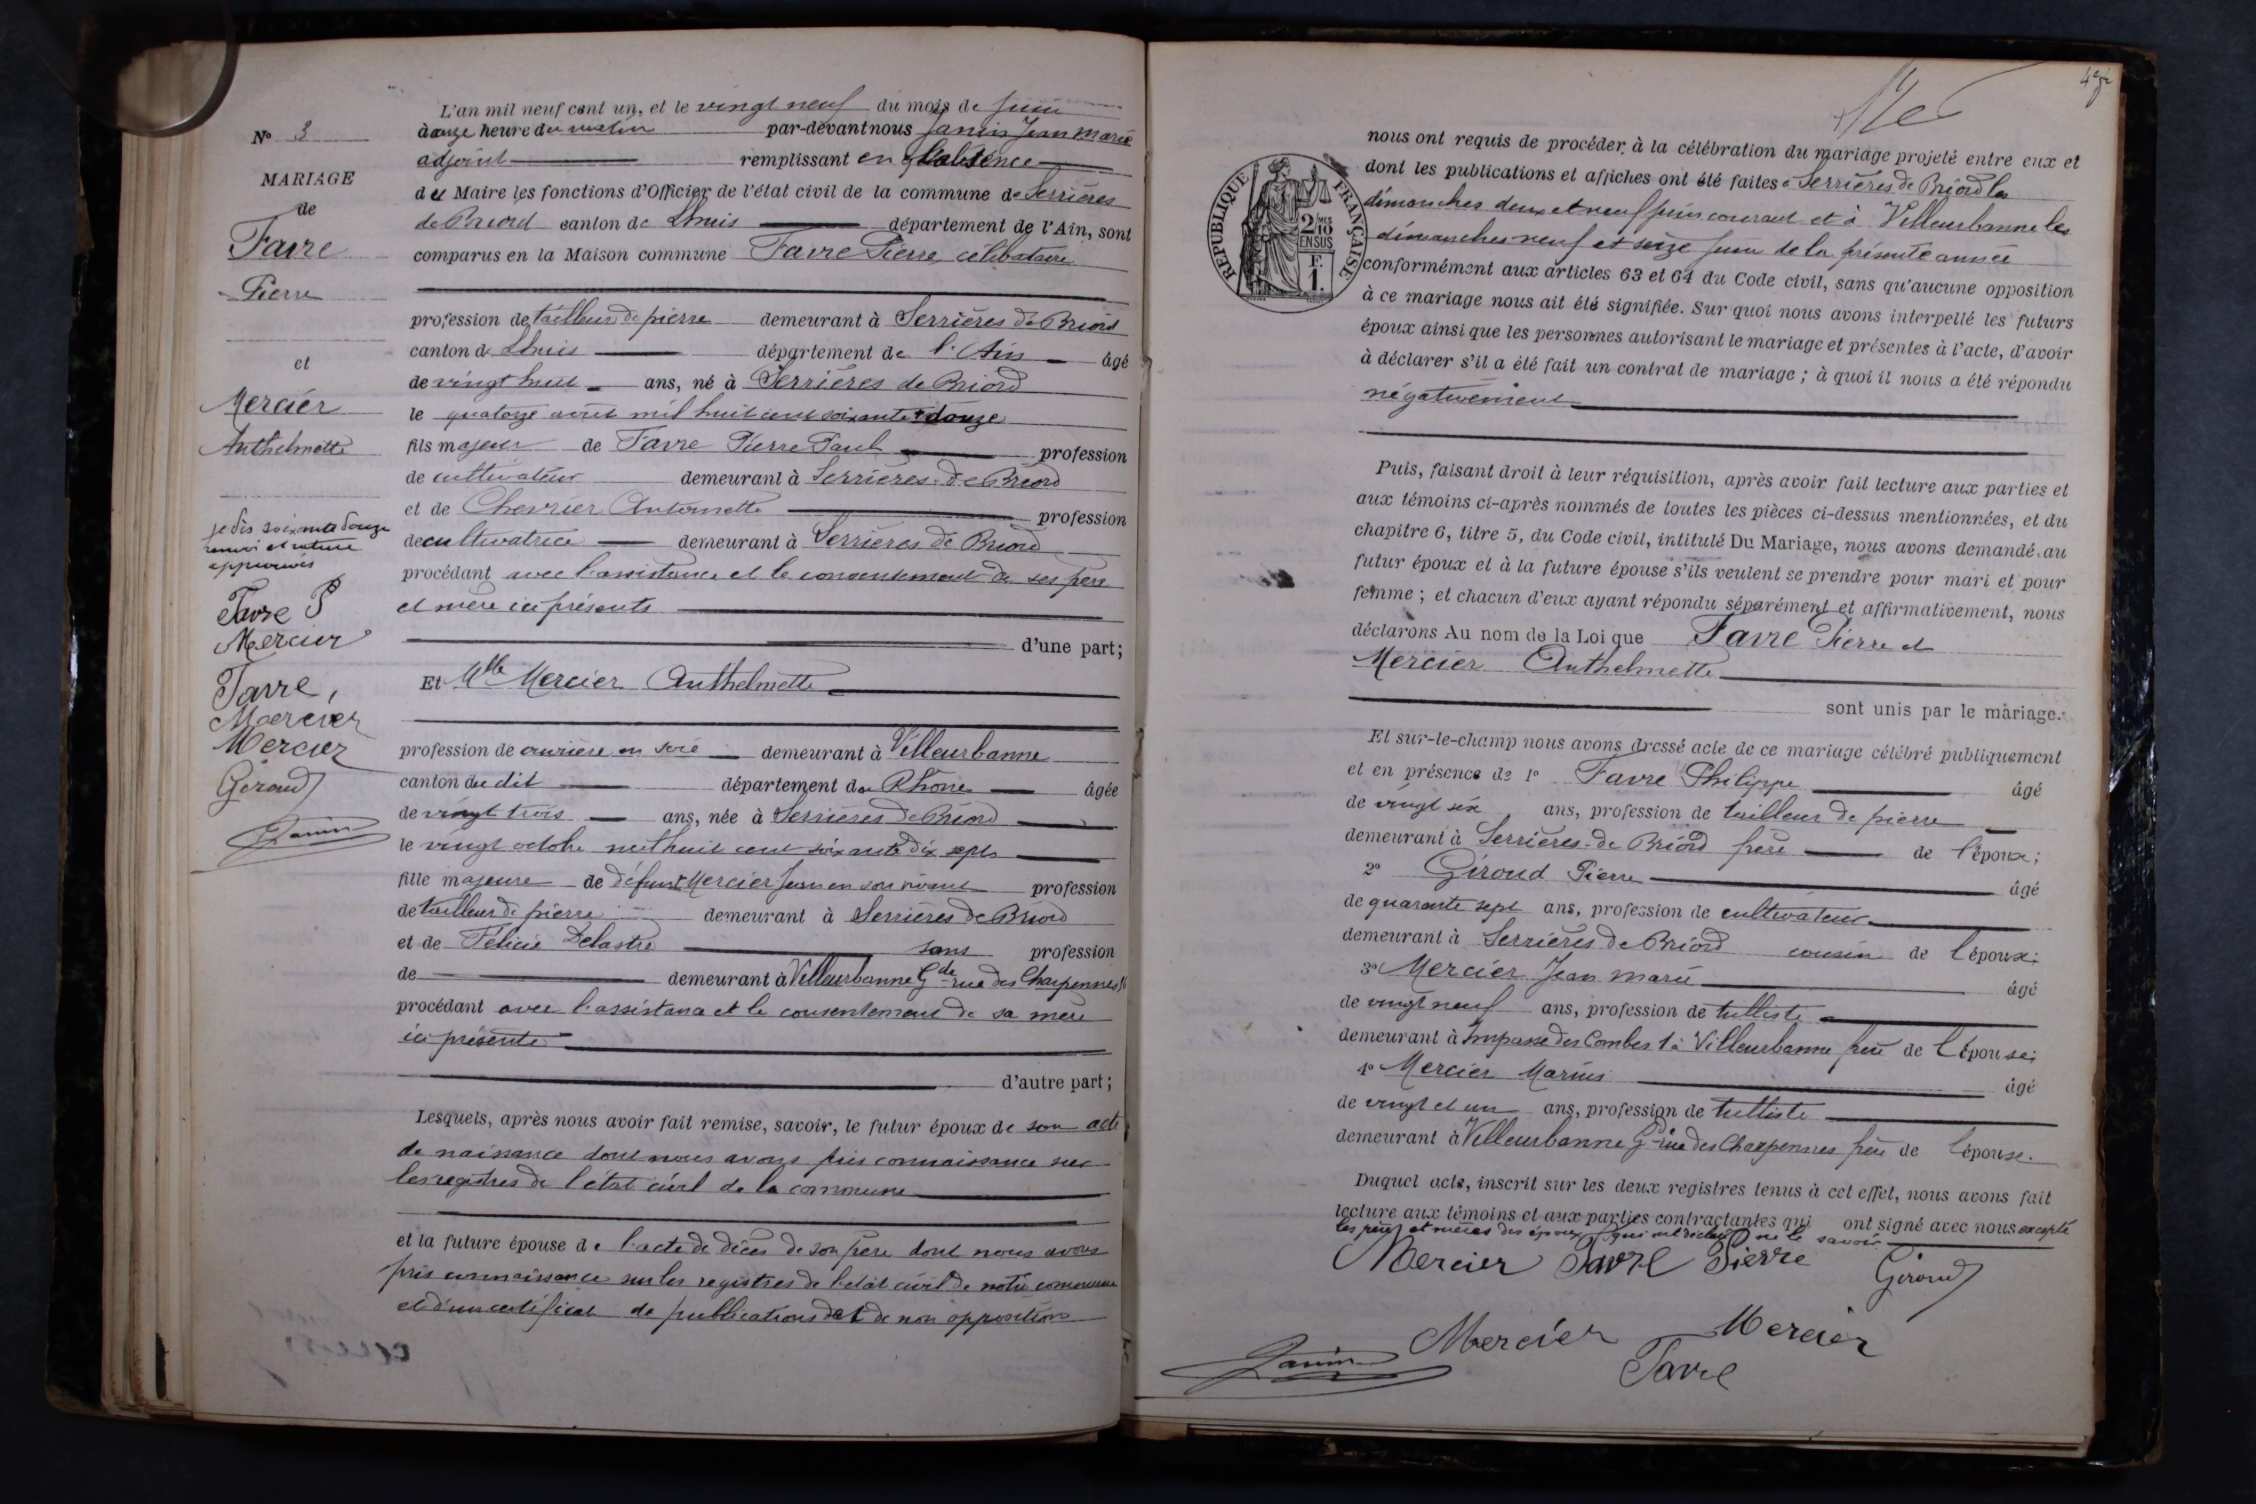 N° 3
MARIAGE
de
Favre
Pierre
et
Mercier
Anthelmette
je dis soixante douze
renvoi et rature
approuvés
Favre P
Mercier
Favre,
Mercier
Mercier
Giroud
Janin
L'an mil neuf cent un, et le vingt neuf du mois de juin
à onze heure du matin par-devant nous Janin Jean Marie
adjoint remplissant en l'absence
du Maire les fonctions d'Officier de l'état civil de la commune de Serrières
de Briord canton de Lhuis département de l'Ain, sont
comparus en la Maison commune Favre Pierre, célibataire
profession de tailleur de pierre demeurant à Serrières de Briord
canton de Lhuis département de l'Ain âgé
de vingt huit ans, né à Serrières de Briord
le quatorze août mil huit cent soixante douze
fils majeur de Favre Pierre Paul profession
de cultivateur demeurant à Serrières de Briord
et de Chevrier Antoinette profession
de cultivatrice demeurant à Serrières de Briord
procédant avec l'assistance et le consentement de ses père
et mère ici présents
d'une part;
Et Mlle Mercier Anthelmette
profession de ouvrière en soie demeurant à Villeurbanne
canton du dit département du Rhône âgée
de vingt trois ans, née à Serrières de Briord
le vingt octobre mil huit cent soixante dix sept
fille majeure de défunt Mercier Jean en son vivant profession
de tailleur de pierre demeurant à Serrières de Briord
et de Félicie Delastre sans profession
de demeurant à Villeurbanne Gde rue des Charpennes
procédant avec l'assistance et le consentement de sa mère
ici présente
d'autre part;
Lesquels, après nous avoir fait remise, savoir, le futur époux de son acte
de naissance dont nous avons pris connaissance sur
les registres de l'état civil de la commune
et la future épouse de l'acte de décès de son père dont nous avons
pris connaissance sur les registres de l'état civil de notre commune
et d'un certificat de publications et de non opposition
RÉPUBLIQUE FRANÇAISE
2/10 MES
EN SUS
F.
1.
nous ont requis de procéder à la célébration du mariage projeté entre eux et
dont les publications et affiches ont été faites à Serrières de Briord les
dimanches deux et neuf juin courant et à Villeurbanne les
dimanches neuf et seize juin de la présente année
conformément aux articles 63 et 64 du Code civil, sans qu'aucune opposition
à ce mariage nous ait été signifiée. Sur quoi nous avons interpellé les futurs
époux ainsi que les personnes autorisant le mariage et présentes à l'acte, d'avoir
à déclarer s'il a été fait un contrat de mariage; à quoi il nous a été répondu
négativement
Puis, faisant droit à leur réquisition, après avoir fait lecture aux parties et
aux témoins ci-après nommés de toutes les pièces ci-dessus mentionnées, et du
chapitre 6, titre 5, du Code civil, intitulé Du Mariage, nous avons demandé au
futur époux et à la future épouse s'ils veulent se prendre pour mari et pour
femme; et chacun d'eux ayant répondu séparément et affirmativement, nous
déclarons Au nom de la Loi que Favre Pierre et
Mercier Anthelmette
sont unis par le mariage.
Et sur-le-champ nous avons dressé acte de ce mariage célébré publiquement
et en présence de 1° Favre Philippe âgé
de vingt six ans, profession de tailleur de pierre
demeurant à Serrières de Briord frère de l'époux;
2° Giroud Pierre âgé
de quarante sept ans, profession de cultivateur
demeurant à Serrières de Briord cousin de l'époux;
3° Mercier Jean Marie âgé
de vingt neuf ans, profession de tulliste
demeurant à Impasse des Combes 1 à Villeurbanne frère de l'épouse;
4° Mercier Marius âgé
de vingt et un ans, profession de tulliste
demeurant à Villeurbanne Gde rue des Charpennes frère de l'épouse.
Duquel acte, inscrit sur les deux registres tenus à cet effet, nous avons fait
lecture aux témoins et aux parties contractantes qui ont signé avec nous excepté
les pères et mères des époux qui ont déclaré ne le savoir
Mercier Favre Pierre Giroud
Mercier Mercier
Janin Favre